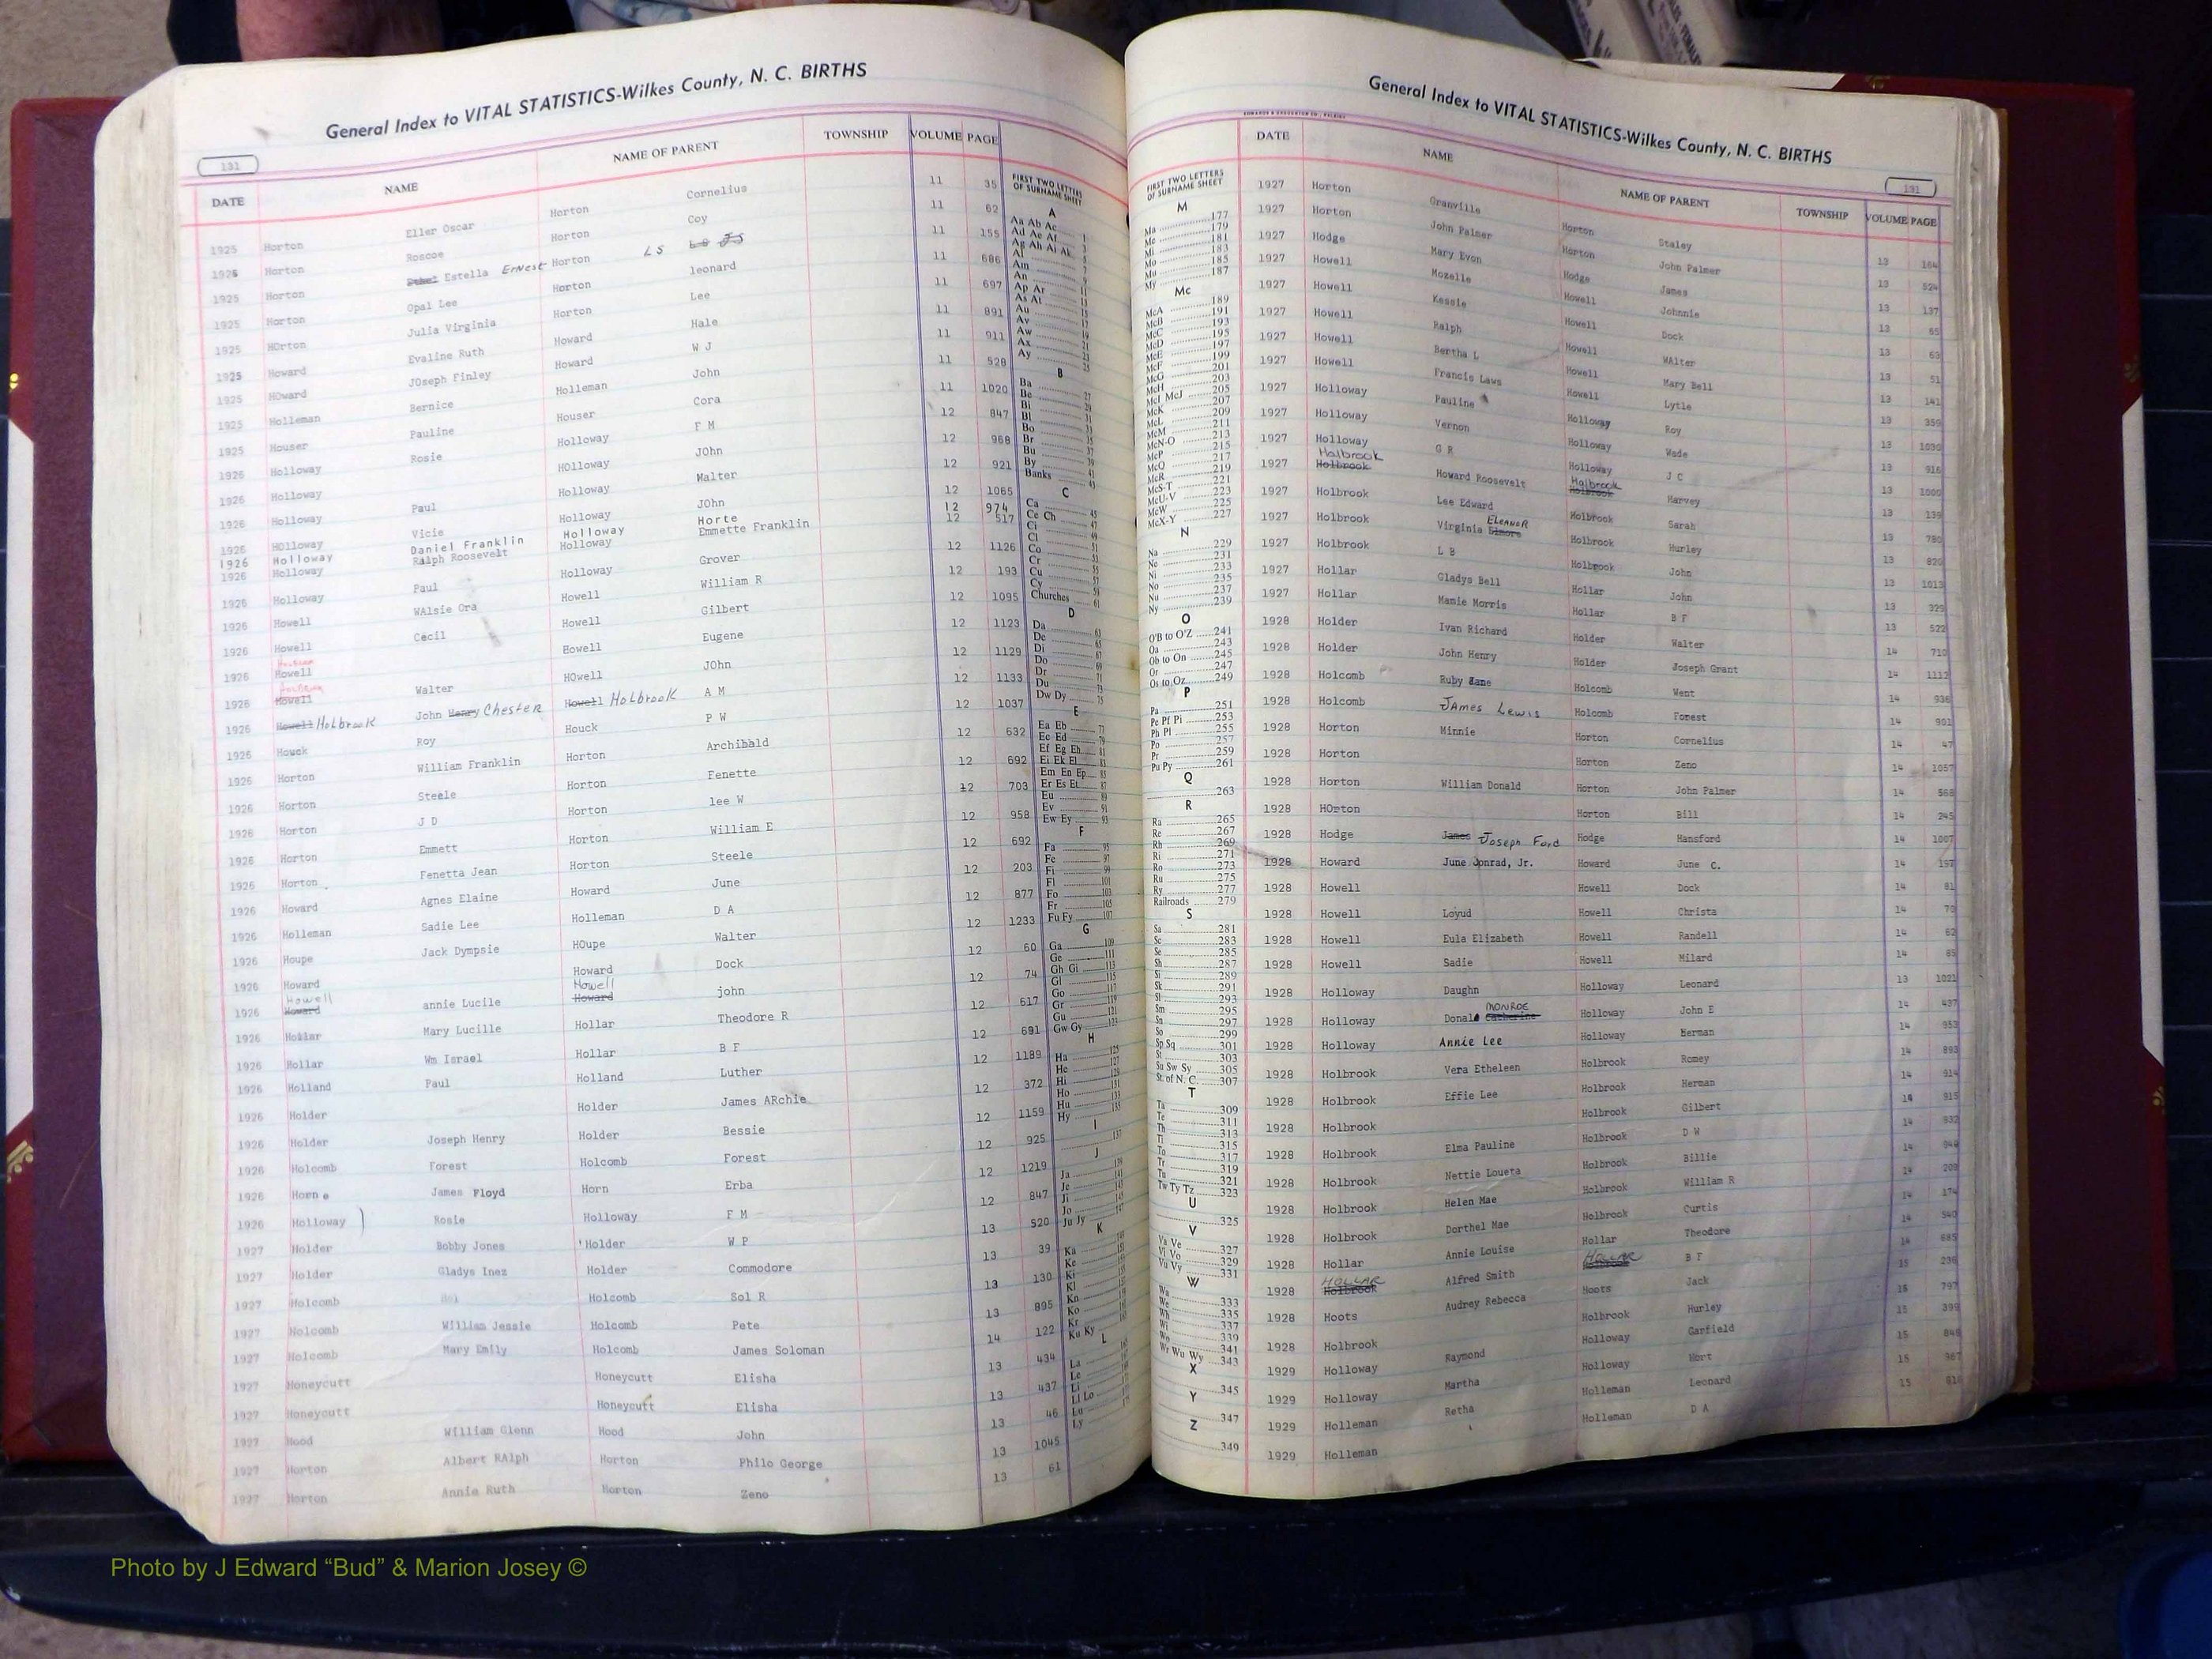 General Index to VITAL STATISTICS-Wilkes County, N. C. BIRTHS
131
DATE NAME NAME OF PARENT TOWNSHIP VOLUME PAGE
1925 Horton Eller Oscar Horton Cornelius 11 35
1925 Horton Roscoe Horton Coy 11 62
1925 Horton Estella Ernest Horton LS 11 155
1925 Horton Opal Lee Horton leonard 11 686
1925 HOrton Julia Virginia Horton Lee 11 697
1925 Howard Evaline Ruth Howard Hale 11 891
1925 HOward JOseph Finley Howard W J 11 911
1925 Holleman Bernice Holleman John 11 528
1925 Houser Pauline Houser Cora 11 1020
1926 Holloway Rosie Holloway F M 12 847
1926 Holloway HOlloway JOhn 12 968
1926 Holloway Paul Holloway Walter 12 921
1926 HOlloway Vicie Holloway JOhn 12 1065
1926 Holloway Daniel Franklin Holloway Horte 12 974
1926 Holloway Ralph Roosevelt Holloway Emmette Franklin 12 517
1926 Holloway Paul Holloway Grover 12 1126
1926 Howell WAlsie Ora Howell William R 12 193
1926 Howell Cecil Howell Gilbert 12 1095
1926 Howell Howell Eugene 12 1123
1926 Howell Walter HOwell JOhn 12 1129
1926 Howell Holbrook John Henry Chester Howell Holbrook A M 12 1133
1926 Houck Roy Houck P W 12 1037
1926 Horton William Franklin Horton Archibald 12 632
1926 Horton Steele Horton Fenette 12 692
1926 Horton J D Horton lee W 12 703
1926 Horton Emmett Horton William E 12 958
1926 Horton Fenetta Jean Horton Steele 12 692
1926 Howard Agnes Elaine Howard June 12 203
1926 Holleman Sadie Lee Holleman D A 12 877
1926 Houpe Jack Dympsie HOupe Walter 12 1233
1926 Howard Howard Dock 12 60
1926 Howell Howard annie Lucile Howell Howard john 12 74
1926 Hollar Mary Lucille Hollar Theodore R 12 617
1926 Hollar Wm Israel Hollar B F 12 691
1926 Holland Paul Holland Luther 12 1189
1926 Holder Holder James ARchie 12 372
1926 Holder Joseph Henry Holder Bessie 12 1159
1926 Holcomb Forest Holcomb Forest 12 925
1926 Horne James Floyd Horn Erba 12 1219
1926 Holloway ) Rosie Holloway F M 12 847
1927 Holder Bobby Jones Holder W P 13 520
1927 Holder Gladys Inez Holder Commodore 13 39
1927 Holcomb Holcomb Sol R 13 130
1927 Holcomb William Jessie Holcomb Pete 13 895
1927 Holcomb Mary Emily Holcomb James Soloman 14 122
1927 Honeycutt Honeycutt Elisha 13 434
1927 Honeycutt Honeycutt Elisha 13 437
1927 Hood William Glenn Hood John 13 46
1927 Horton Albert RAlph Horton Philo George 13 1045
1927 Horton Annie Ruth Horton Zeno 13 61
FIRST TWO LETTERS
OF SURNAME SHEET
A
Aa Ab Ac 1
Ad Ae Af 3
Ag Ah Ai Ak 5
Al 7
Am 9
An 11
Ap Ar 13
As At 15
Au 17
Av 19
Aw 21
Ax 23
Ay 25
B
Ba 27
Be 29
Bi 31
Bl 33
Bo 35
Br 37
Bu 39
By 41
Banks 43
C
Ca 45
Ce Ch 47
Ci 49
Cl 51
Co 53
Cr 55
Cu 57
Cy 59
Churches 61
D
Da 63
De 65
Di 67
Do 69
Dr 71
Du 73
Dw Dy 75
E
Ea Eb 77
Ec Ed 79
Ef Eg Eh 81
Ei Ek El 83
Em En Ep 85
Er Es Et 87
Eu 89
Ev 91
Ew Ey 93
F
Fa 95
Fe 97
Fi 99
Fl 101
Fo 103
Fr 105
Fu Fy 107
G
Ga 109
Ge 111
Gh Gi 113
Gl 115
Go 117
Gr 119
Gu 121
Gw Gy 123
H
Ha 125
He 127
Hi 129
Ho 131
Hu 133
Hy 135
I
137
J
Ja 139
Je 141
Ji 143
Jo 145
Ju Jy 147
K
Ka
Ke
Ki
Kl
Kn
Ko
Kr
Ku Ky
L
La
Le
Li
Ll Lo
Lu
Ly
General Index to VITAL STATISTICS-Wilkes County, N. C. BIRTHS
FIRST TWO LETTERS
OF SURNAME SHEET
M
Ma 177
Me 179
Mi 181
Mc 183
Mo 185
Mu 187
My
Mc
McA 189
McB 191
McC 193
McD 195
McE 197
McF 199
McG 201
McH 203
McI McJ 205
McK 207
McL 209
McM 211
McN-O 213
McP 215
McQ 217
McR 219
McS-T 221
McU-V 223
McW 225
McX-Y 227
N
Na 229
Ne 231
Ni 233
No 235
Nu 237
Ny 239
O
O'B to O'Z 241
Oa 243
Ob to On 245
Or 247
Os to Oz 249
P
Pa 251
Pe Pf Pi 253
Ph Pl 255
Po 257
Pr 259
Pu Py 261
Q
263
R
Ra 265
Re 267
Rh 269
Ri 271
Ro 273
Ru 275
Ry 277
Railroads 279
S
Sa 281
Sc 283
Se 285
Sh 287
Si 289
Sk 291
Sl 293
Sm 295
Sn 297
So 299
Sp Sq 301
St 303
Su Sw Sy 305
St. of N. C. 307
T
Ta 309
Te 311
Th 313
Ti 315
To 317
Tr 319
Tu 321
Tw Ty Tz 323
U
325
V
Va Ve 327
Vi Vo 329
Vu Vy 331
W
Wa 333
We 335
Wh 337
Wi 339
Wo 341
Wr Wu Wy 343
X
345
Y
347
Z
349
131
DATE NAME NAME OF PARENT TOWNSHIP VOLUME PAGE
1927 Horton Granville Horton Staley 13 164
1927 Horton John Palmer Horton John Palmer 13 524
1927 Hodge Mary Evon Hodge James 13 137
1927 Howell Mozelle Howell Johnnie 13 65
1927 Howell Kessie Howell Dock 13 63
1927 Howell Ralph Howell WAlter 13 51
1927 Howell Bertha L Howell Mary Bell 13 141
1927 Howell Francis Laws Howell Lytle 13 359
1927 Holloway Pauline Holloway Roy 13 1030
1927 Holloway Vernon Holloway Wade 13 916
1927 Holloway G R Holloway J C 13 1000
1927 Holbrook Holbrook Howard Roosevelt Holbrook Holbrook Harvey 13 139
1927 Holbrook Lee Edward Holbrook Sarah 13 780
1927 Holbrook Virginia Elmore ELEANOR Holbrook Hurley 13 820
1927 Holbrook L B Holbrook John 13 1013
1927 Hollar Gladys Bell Hollar John 13 329
1927 Hollar Mamie Morris Hollar B F 13 522
1928 Holder Ivan Richard Holder Walter 14 710
1928 Holder John Henry Holder Joseph Grant 14 1112
1928 Holcomb Ruby Jane Holcomb Went 14 936
1928 Holcomb JAmes Lewis Holcomb Forest 14 901
1928 Horton Minnie Horton Cornelius 14 47
1928 Horton Horton Zeno 14 1057
1928 Horton William Donald Horton John Palmer 14 568
1928 HOrton Horton Bill 14 245
1928 Hodge James Joseph Ford Hodge Hansford 14 1007
1928 Howard June Conrad, Jr. Howard June C. 14 197
1928 Howell Howell Dock 14 81
1928 Howell Loyud Howell Christa 14 79
1928 Howell Eula Elizabeth Howell Randell 14 62
1928 Howell Sadie Howell Milard 14 85
1928 Holloway Daughn Holloway Leonard 13 1021
1928 Holloway Donald Catherine MONROE Holloway John E 14 437
1928 Holloway Annie Lee Holloway Herman 14 953
1928 Holbrook Vera Etheleen Holbrook Romey 14 893
1928 Holbrook Effie Lee Holbrook Herman 14 914
1928 Holbrook Holbrook Gilbert 14 915
1928 Holbrook Elma Pauline Holbrook D W 14 932
1928 Holbrook Nettie Loueta Holbrook Billie 14 944
1928 Holbrook Helen Mae Holbrook William R 14 209
1928 Holbrook Dorthel Mae Holbrook Curtis 14 174
1928 Hollar Annie Louise Hollar Theodore 14 540
1928 HOLLAR Holbrook Alfred Smith HOLLAR B F 14 685
1928 Hoots Audrey Rebecca Hoots Jack 15 236
1928 Holbrook Holbrook Hurley 15 797
1929 Holloway Raymond Holloway Garfield 15 399
1929 Holloway Martha Holloway Hort 15 848
1929 Holleman Retha Holleman Leonard 15 367
1929 Holleman Holleman D A 15
Photo by J Edward “Bud” & Marion Josey ©